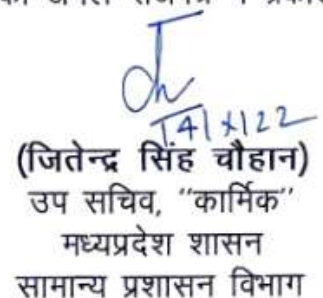 (जितेन्द्र सिंह चौहान)
उप सचिव, "कार्मिक"
मध्यप्रदेश शासन
सामान्य प्रशासन विभाग